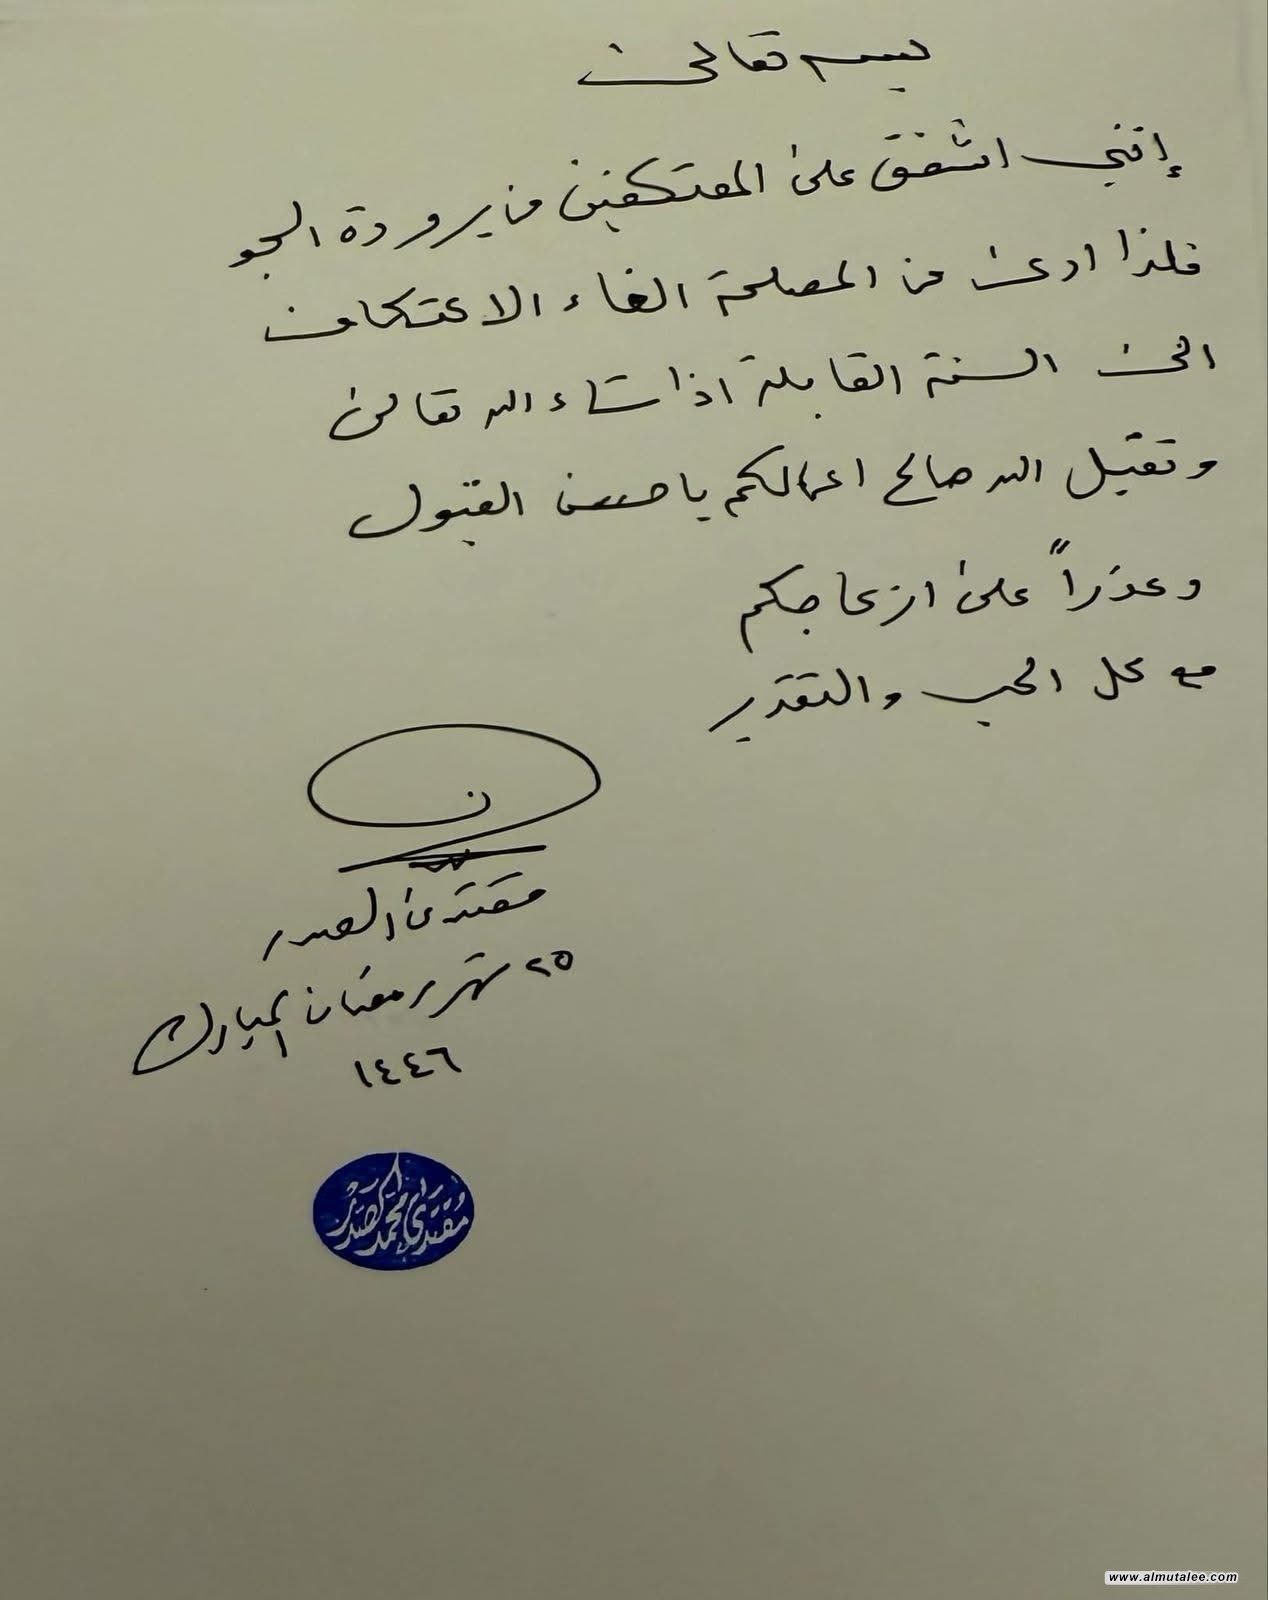 بسمه تعالى
إنني اشفق على المعتكفين من برودة الجو
فلذا ارى من المصلحة الغاء الاعتكاف
الى السنة القابلة اذا شاء الله تعالى
وتقبل الله صالح اعمالكم باحسن القبول
وعذراً على ازعاجكم
مع كل الحب والتقدير
مقتدى الصدر
٢٥ شهر رمضان المبارك
١٤٤٦
مقتدى محمد الصدر
www.almutalee.com